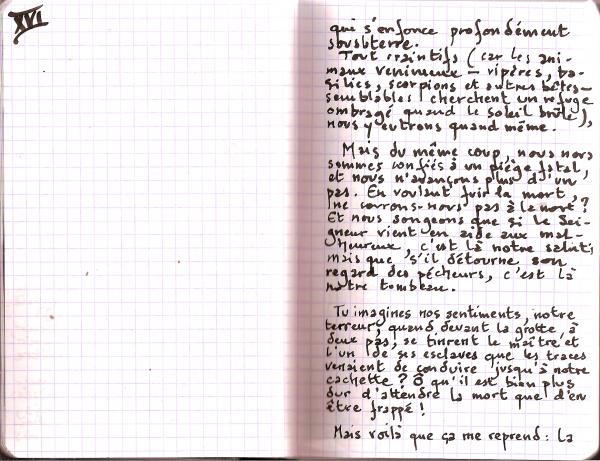 XVI
qui s'enfonce profondément
sous terre.
Tout craintifs (car les ani-
maux venimeux – vipères, ba-
silics, scorpions et autres bêtes
semblables cherchent un refuge
ombragé quand le soleil brûle),
nous y entrons quand même.
Mais du même coup, nous nous
sommes confiés à un piège fatal,
et nous n'avançons plus d'un
pas. En voulant fuir la mort,
ne courons-nous pas à la mort?
Et nous songeons que si le Sei-
gneur vient en aide aux mal-
heureux, c'est là notre salut;
mais que s'il détourne son
regard des pécheurs, c'est là
notre tombeau.
Tu imagines nos sentiments, notre
terreur, quand devant la grotte, à
deux pas, se tinrent le maître et
l'un de ses esclaves que les traces
venaient de conduire jusqu'à notre
cachette? Ô qu'il est bien plus
dur d'attendre la mort que d'en
être frappé!
Mais voilà que ça me reprend: la